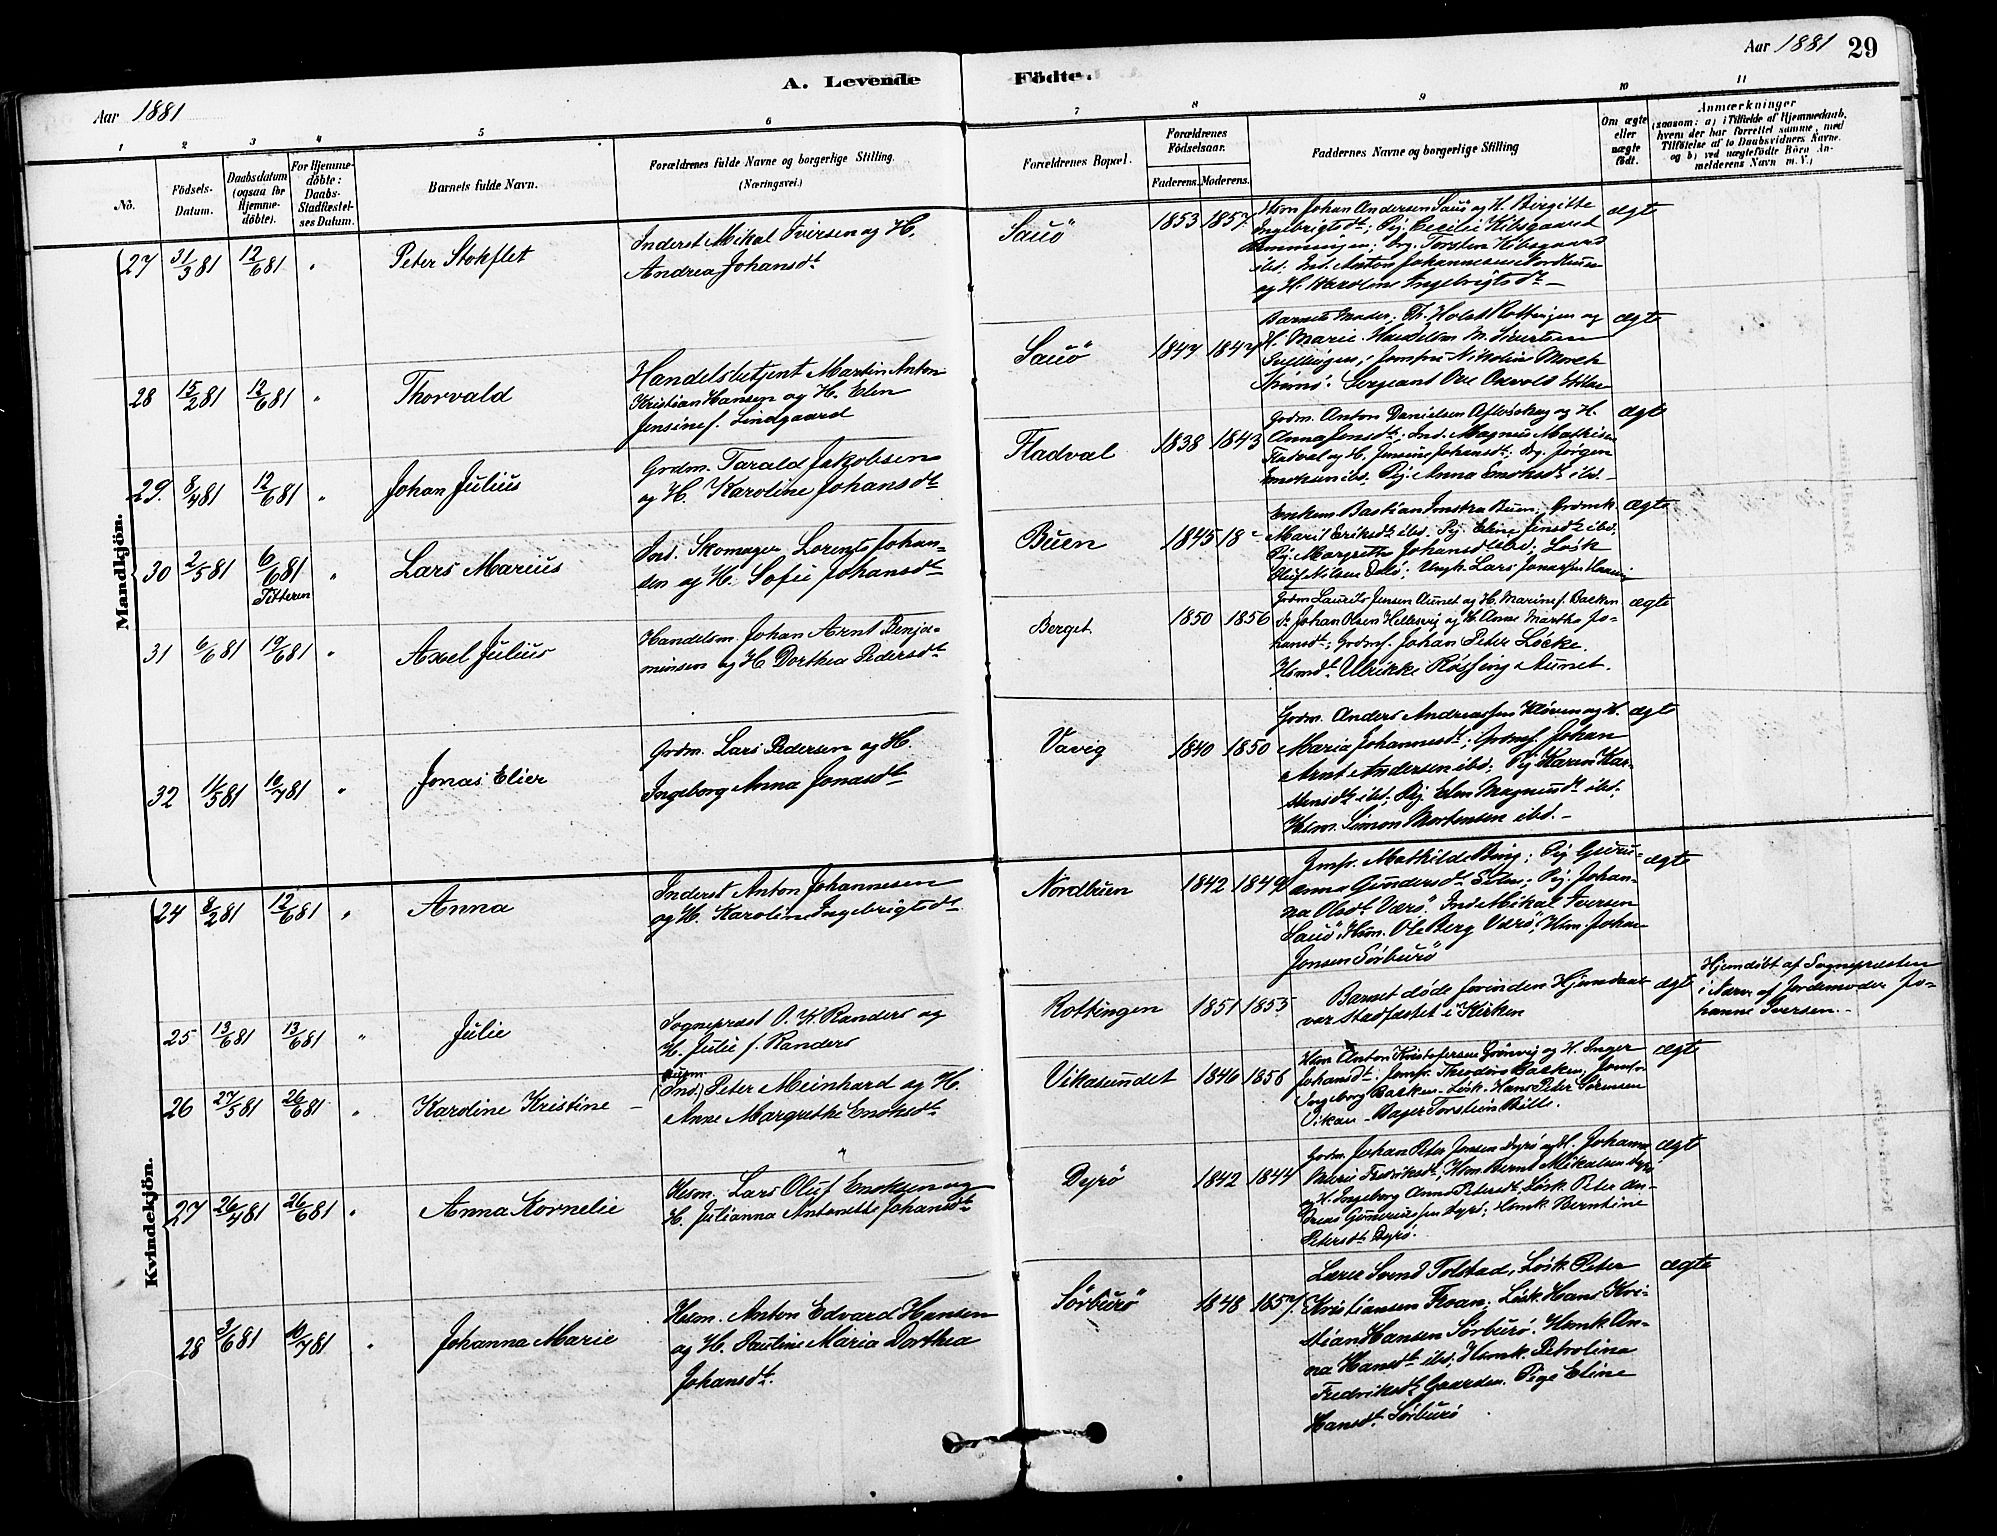 Aar 1881
A. Levende
Födte.
Aar 1881
29
1
2
3
4
5
6
7
8
9
10
11
No.
Födsels-
Datum.
Daabsdatum
(ogsaa for
Hjemme-
döbte).
For Hjemme-
döbte:
Daabs-
Stadfæstel-
ses Datum.
Barnets fulde Navn.
Forældrenes fulde Navne og borgerlige Stilling.
(Næringsvei.)
Forældrenes Bopæl.
Forældrenes
Födselsaar.
Faderens. Moderens.
Faddernes Navne og borgerlige Stilling
Om ægte
eller
uægte
födt.
Anmærkninger
(saasom: a) i Tilfælde af Hjemmedaab,
hvem der har forrettet samme, med
Tilföielse af to Daabsvidners Navne.
og b) ved uægtefödte Börn An-
melderens Navn m. V.)
Mandkjön.
27 31/3 81 12/6 81 " Peter Stokflet
Inderst Mikal Iversen og H.
Andrea Johansdt
Sauö 1853 1857
Hsm Johan Andersen Sauö og H. Birgitte
Ingebrigtsdt; Pig. Cecilie Kibsgaard
Torsten Kibsgaard
ibd. Ind. Anton Johannesen Nordbuen
og H. Karoline Ingebrigtsdt —
ægte
28 15/2 81 12/6 81 " Thorvald
Handelsbetjent Martin Anton
Kristian Hansen og H. Elen
Jensine f. Lindgaard
Sauö 1847 1847
Barnets Moder; Th. Holst Rottingen og
H. Marie. Handelsm M. Sivertsen
Jomfru Nikoline Moreh
Sergeant Ove Oxvold
ægte
29. 8/4 81 12/6 81 " Johan Julius
Grdm. Tarald Jakobsen
og H. Karoline Johansdt
Fladval 1838 1843
Grdm. Anton Danielsen og H.
Anna Jensdt; Ind. Magnus Mathisen
Fladval og H. Jensine Johansdt; Yg. Jörgen
Enoksen ibd. Pig. Anna Enoksdt ibd. —
ægte
30 2/5 81 6/6 81 Titteren " Lars Marius
Ind. Skomager Lorents Johan-
sen og H. Sofie Johansdt
Buen 1845 18
Enkem. Bastian Buen; Grdmk.
Marit Eriksdt ibd. Pig. Eline Jensdt ibd.
Pig. Margrethe Johansdt ibd; Løsk
Oluf Nilsen; Ungk. Lars Jonassen
ægte
31 6/6 81 19/6 81 " Axel Julius
Handelsm. Johan Arnt Benja-
minsen og H. Dorthea Pedersdt
Berget 1850 1856
Grdm Laurits Jensen Aunet og H. Marine f. Backen
Johan Olsen Hellesvig og H. Anne Martha Jo-
hansdt; Grdmf. Johan Peter Løcke.
Hsmdt. Ulrikke Røssvig Aunet.
ægte
32 11/5 81 10/7 81 " Jonas Elier
Grdm. Lars Pedersen og H.
Ingeborg Anna Jonasdt
Vavig 1840 1850
Grdm. Anders Andreassen Kløven og H.
Maria Johannesdt; Grdmf. Johan
Arnt Andersen ibd; Pig Karen Kar-
stensdt ibd; Pig. Elen Magnusdt ibd;
Hsm. Simon Mortensen ibd. —
ægte
Kvindekjön.
24 8/2 81 12/6 81 " Anna
Inderst Anton Johannesen
og H. Karoline Ingebrigtsdt
Nordbuen 1842 1849
Jmfr. Mathilde Bing; Pig. Guru-
anna Gundersdt; Pig. Johan-
na Olsdt Værö. Ind. Mikal Iversen
Sauö; Hsm. Ole Berg Værö; Hsm. Johan
Jonsen Sörburö
ægte
25 13/6 81 13/6 81 " Julie
Sogneprest O. K. Randers og
H. Julie f. Randers
Rottingen 1851 1855
Barnet døde førinden Hjemdaab
var stadfæstet i Kirken
ægte
Hjemdøbt af Sognepresten
i Nærv. af Jordemoder Jo-
hanne Iversen. —
26 27/5 81 26/6 81 " Karoline Kristine —
(Ind.) Peter Meinhard og H.
Anne Margrethe Enoksdt
Vikasundet 1846 1856
Hsm Anton Kristofersen Grønvig og H. Inger
Johansdt. Jomfr. Theodora Backen; Jomfr.
Ingeborg Backen. Løsk. Hans Peter Sørensen
Vikan. Bager Torstein Bille.
ægte
27 26/4 81 26/6 81 " Anna Kornelie
Hsm. Lars Oluf Enoksen og
H. Julianna Antonette Johansdt
Dyrö 1842 1844
Grdm. Johan Peter Jensen Dyrö og H. Johanna
Marie Fredriksdt; Hsm. Bernt Mikalsen Dyrö
og H. Ingeborg Anna Petersdt. Løsk. Peter An-
dreas Gunneriussen Dyrö; Hsmk. Berntine
Petersdt. Dyrö.
ægte
28 3/6 81 10/7 81 " Johanna Marie
Hsm. Anton Edvard Hansen
og H. Pauline Maria Dorthea
Johansdt.
Sörburö 1848 1857
Lærer Svend Tolstad, Løsk. Peter
Kristiansen Froan; Løsk. Hans Kri-
stian Hansen Sørburö. Hsmk. An-
na Hansdt ibd; Hsmk. Petrolina
Fredriksdt Gaarden. Pige Eline
Hansdt Sørburö
ægte